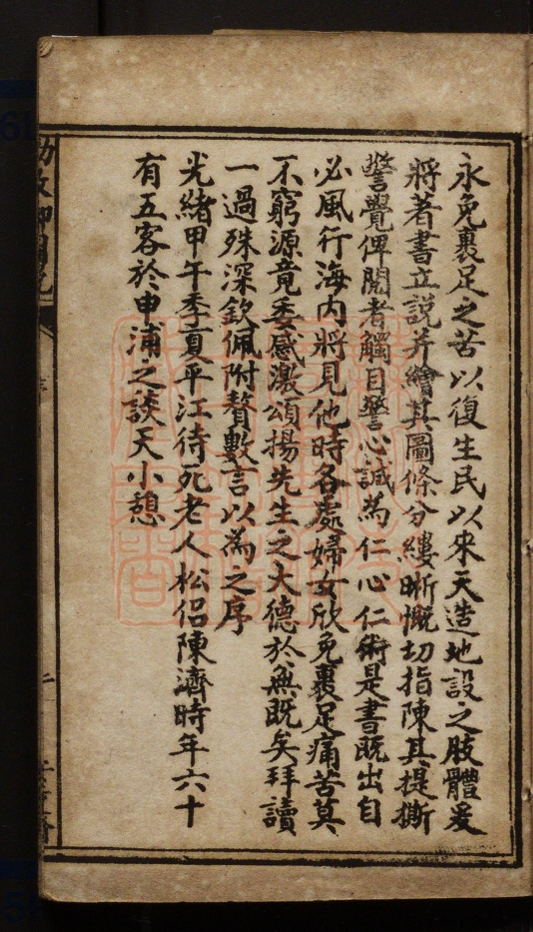 永免裹足之苦以復生民以來天造地設之肢體爰
將著書立說并繪其圖條分縷晰慨切指陳其提撕
警覺俾閱者觸目警心誠為仁心仁術是書既出自
必風行海內將見他時各處婦女欣免裹足痛苦莫
不窮源竟委感激頌揚先生之大德於無既矣拜讀
一過殊深欽佩附贅數言以為之序
光緒甲午季夏平江待死老人松侶陳濟時年六十
有五客於申浦之談天小憩